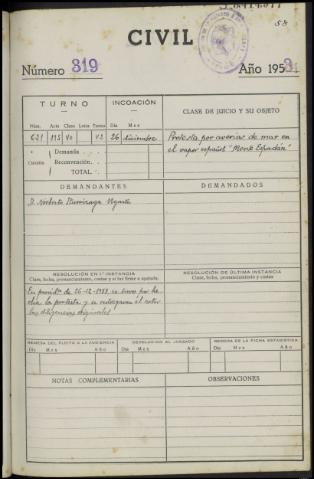 58
CIVIL
Número 319
Año 1953
TURNO
INCOACIÓN
CLASE DE JUICIO Y SU OBJETO
Núm. Arts. Clase Letra Turno Día Mes
631 115 26 Diciembre
Protesta por averias de mar en
el vapor español "Monte Espadán"
Cuantía Demanda
Reconvención
TOTAL
DEMANDANTES
DEMANDADOS
D. Norberto Ugarte
RESOLUCIÓN EN 1.ª INSTANCIA
RESOLUCIÓN DE ÚLTIMA INSTANCIA
Clase, fecha, pronunciamiento, costas y si fue firme o apelada.
Clase, fecha, pronunciamiento y costas
En provid.ª de 26-12-1953 se tuvo por he-
cha la protesta y se entregaron al
las diligencias originales
REMESA DEL PLEITO A LA AUDIENCIA
DEVOLUCION AL JUZGADO
REMESA DE LA FICHA ESTADISTICA
Día Mes Año
Día Mes Año
Día Mes Año
NOTAS COMPLEMENTARIAS
OBSERVACIONES